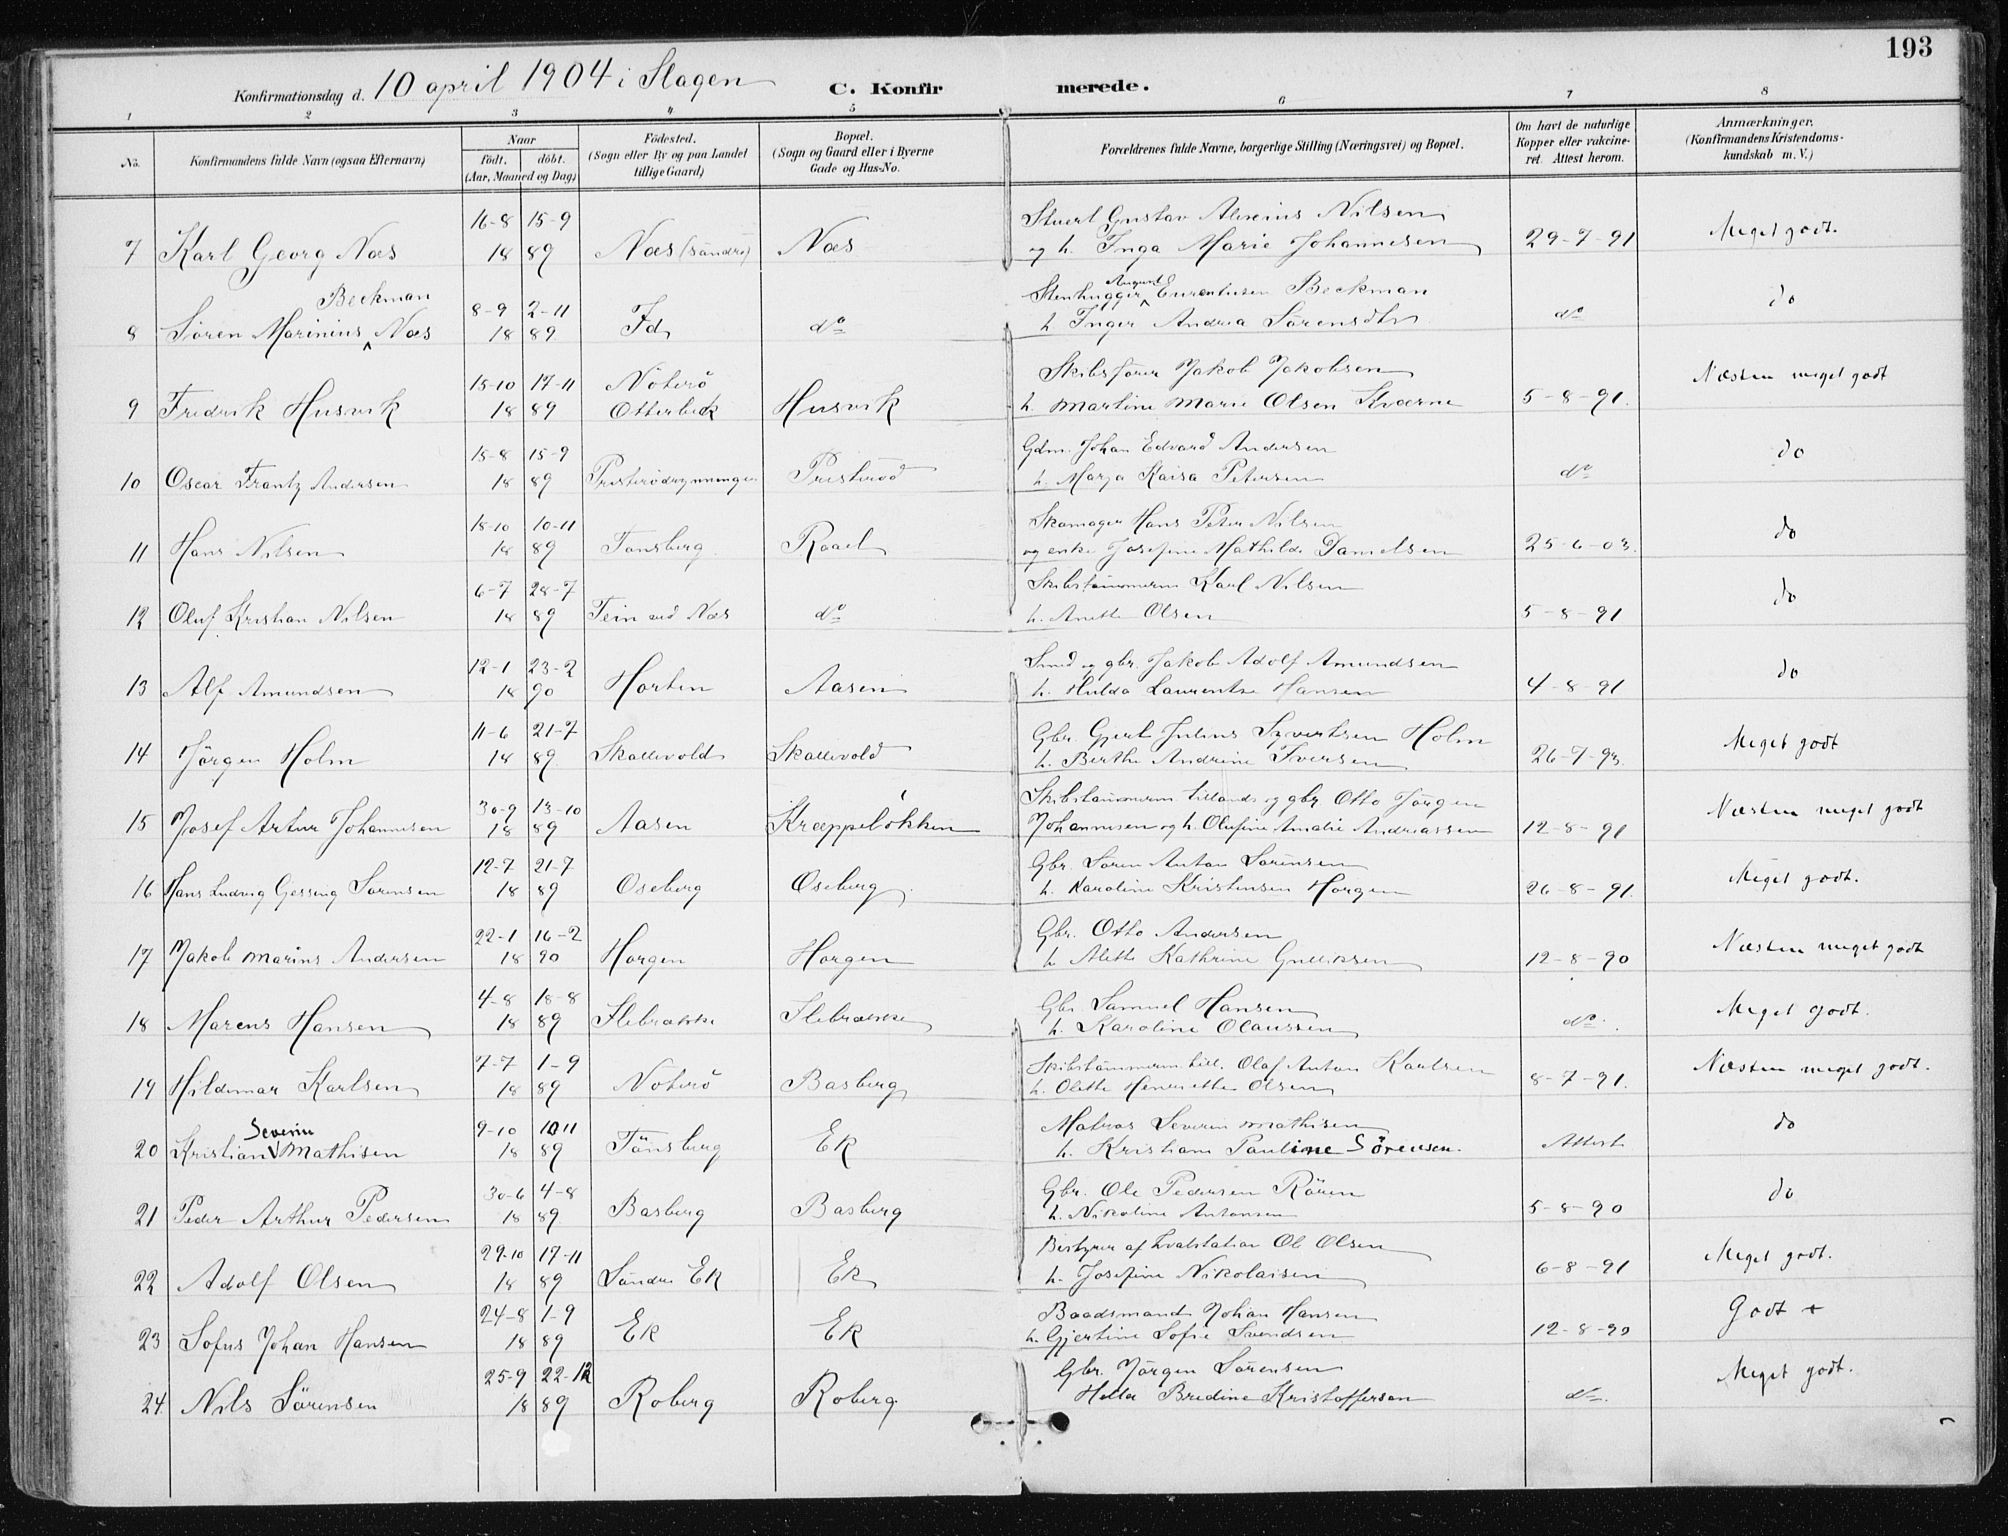 193
Konfirmationsdag d. 10 april 1904 i Slagen C. Konfirmerede.
1 2 3 4 5 6 7 8
No. Konfirmandens fulde Navn (ogsaa Efternavn) Naar født. døbt. (Aar, Maaned og Dag) Fødested. (Sogn eller By og paa Landet tillige Gaard) Bopæl. (Sogn og Gaard eller i Byerne Gade og Hus-No. Forældrenes fulde Navne, borgerlige Stilling (Næringsvei) og Bopæl. Om havt de naturlige Kopper eller vakcineret. Attest herom. Anmærkninger. (Konfirmandens Kristendomskundskab m. V.)
16-8 15-9 Stuert Gustav Nilsen
7 Karl Georg Næs 18 89 Næs (søndre) Næs og h. Inga Marie Johannesen 29-7-91 Meget godt.
Beckman 8-9 2-11 Stenhugger August Beckman do
8 Søren Marinius Næs 18 89 Id do h. Inger Andrea Sørensdtr do
15-10 17-11 Nøterø Skibsfører Jakob Jakobsen Næsten meget godt
9 Fredrik Husvik 18 89 Otterbeck Husvik h. Martine Marie Olsen Kværne 5-8-91.
15-8 15-9 Gdm. Johan Edvard Andersen do
10 Oscar Frantz Andersen 18 89 Presterødrynningen Presterød h. Marja Kaisa Petersen do
18-10 10-11 Skomager Hans Peter Nilsen do
11 Hans Nilsen 18 89 Tønsberg Raael og enke Josefine Mathilde Danielsen 25-6-03.
6-7 28-7 Skibstømmerm Karl Nilsen do
12 Oluf Kristian Nilsen 18 89 Tein ved Næs do h. Anette Olsen 5-8-91
12-1 23-2 Smed og gbr. Jakob Adolf Amundsen do
13 Alf Amundsen 18 90 Horten Aasen h. Hulda Laurentze Hansen 4-8-91
11-6 21-7 Gbr. Gjert Julius Syvertsen Holm Meget godt
14 Jørgen Holm 18 89 Skallevold Skallevold h. Berthe Andrine Iversen 26-7-93.
30-9 13-10 Skibstømmerm. tillands og gbr Otto Jørgen Næsten meget godt
15 Josef Artur Johannesen 18 89 Aasen Kræppeløkken Johannesen og h. Olufine Amalie Andreassen 12-8-91
12-7 21-7 Gbr. Søren Anton Sørensen Meget godt.
16 Hans Ludvig Gessing Sørensen 18 89 Oseberg Oseberg h. Karoline Kristensen Horgen 26-8-91.
22-1 16-2 Gbr. Otto Andersen Næsten meget godt
17 Jakob Marius Andersen 18 90 Horgen Horgen h. Alette Kathrine Gulliksen 12-8-90
4-8 18-8 Gbr. Samuel Hansen Meget godt.
18 Marens Hansen 18 89 Slebrække Slebrække h. Karoline Olaussen do
7-7 1-9 Skibstømmerm. till. Olaf Anton Karlsen Næsten meget godt.
19 Hildemar Karlsen 18 89 Nøterø Basberg h. Olette Henriette Olsen 8-7-91.
Severin 9-10 10 11 Matros Severin Mathisen do
20 Kristian Mathisen 18 89 Tønsberg Ek h. Kristiane Pauline Sørensen. Attest
30-6 4-8 Gbr. Ole Pedersen Røren do
21 Peder Arthur Pedersen 18 89 Basberg Basberg h. Nikoline Antonsen 5-8-90
29-10 17-11 Bestyrer af hvalstation Ole Olsen Meget godt.
22 Adolf Olsen 18 89 Søndre Ek Ek h. Josefine Nikolaisen 6-8-91
24-8 1-9 Baadsmand Johan Hansen Godt +
23 Sofus Johan Hansen 18 89 Ek Ek h. Gjertine Sofie Svendsen 12-8-90
25-9 22-12 Gbr. Jørgen Sørensen Meget godt.
24. Nils Sørensen 18 89 Roberg Roberg Hella Bredine Kristoffersen do